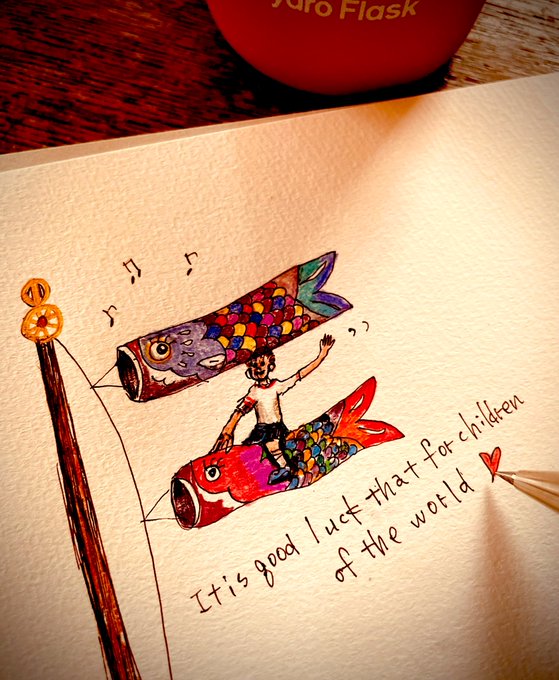 ydro Flask
It is good luck that for children
of the world